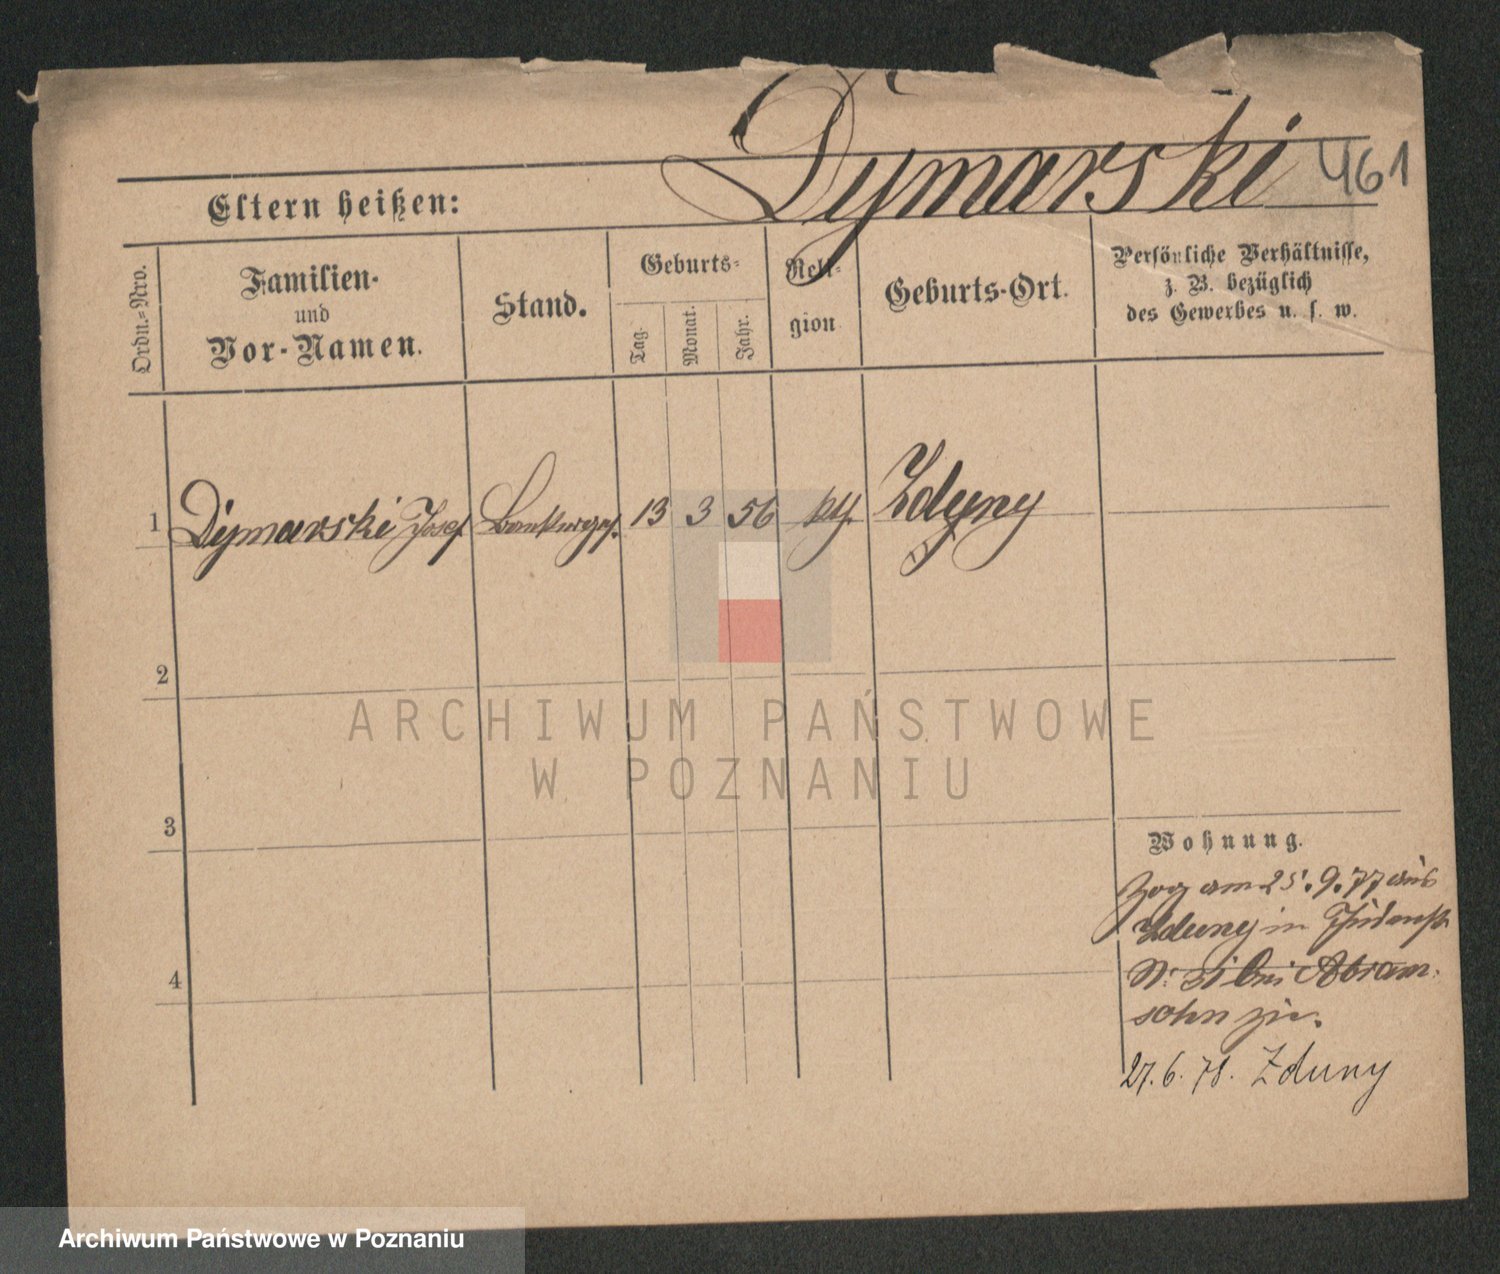 Dymarski 461
Eltern heißen:
Ordn.=Nro.
Familien-
und
Vor-Namen.
Stand.
Geburts-
Tag.
Monat.
Jahr.
Reli-
gion
Geburts-Ort.
Persönliche Verhältnisse,
z. B. bezüglich
des Gewerbes u. s. w.
1 Dymarski Josef 13 3 56 Zduny
2
ARCHIWUM PAŃSTWOWE
W POZNANIU
3
Wohnung.
Zog am 25.9.77 aus
Zduny in Judenstr.
4
No 31 bei Abram-
sohn zu.
27.6.78. Zduny
Archiwum Państwowe w Poznaniu